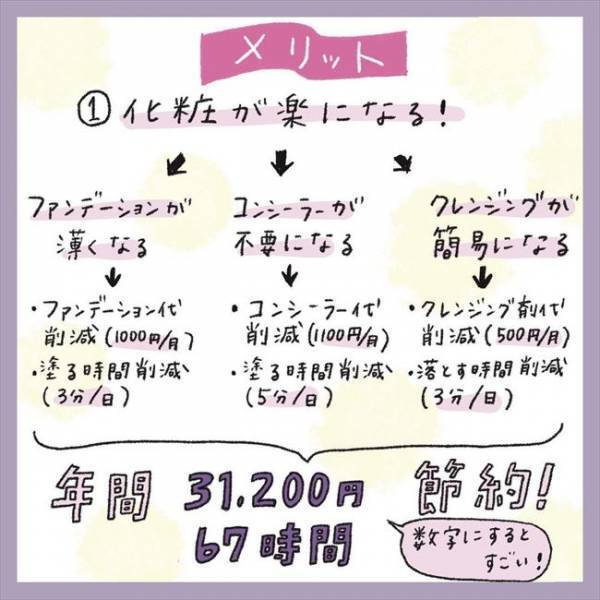 メリット
①化粧が楽になる!
ファンデーションが
薄くなる
コンシーラーが
不要になる
クレンジングが
簡易になる
・ファンデーション代
削減(1000円/月)
・塗る時間削減
(3分/日)
・コンシーラー代
削減(1100円/月)
・塗る時間削減
(5分/日)
・クレンジング剤代
削減(500円/月)
・落とす時間削減
(3分/日)
年間 31.200円 節約!
67時間
数字にすると
すごい!